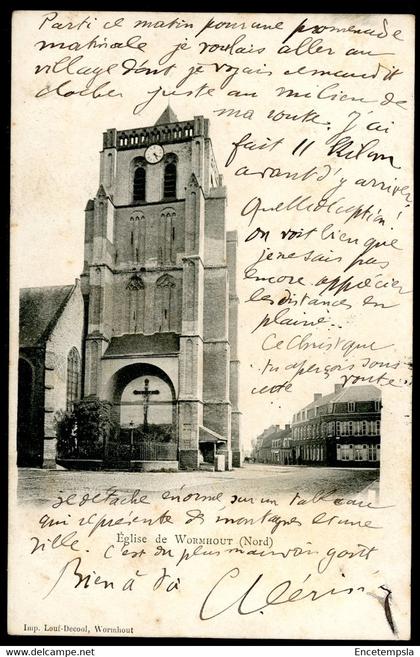 Parti ce matin pour une promenade
matinale je voulais aller au
village dont je voyais le maudit
clocher juste au milieu de
ma route. J'ai
fait 11 Kilom
avant d'y arriver
Quelle déception!
On voit bien que
je ne sais pas
encore apprécier
les distances en
plaine.
Ce Christ que
tu aperçois sous
cette route
je détache énorme sur un tableau
qui représente des montagnes et une
ville. C'est du plus mauvais goût
Église de WORMHOUT (Nord)
Bien à toi
Imp. Louf-Decool, Wormhout